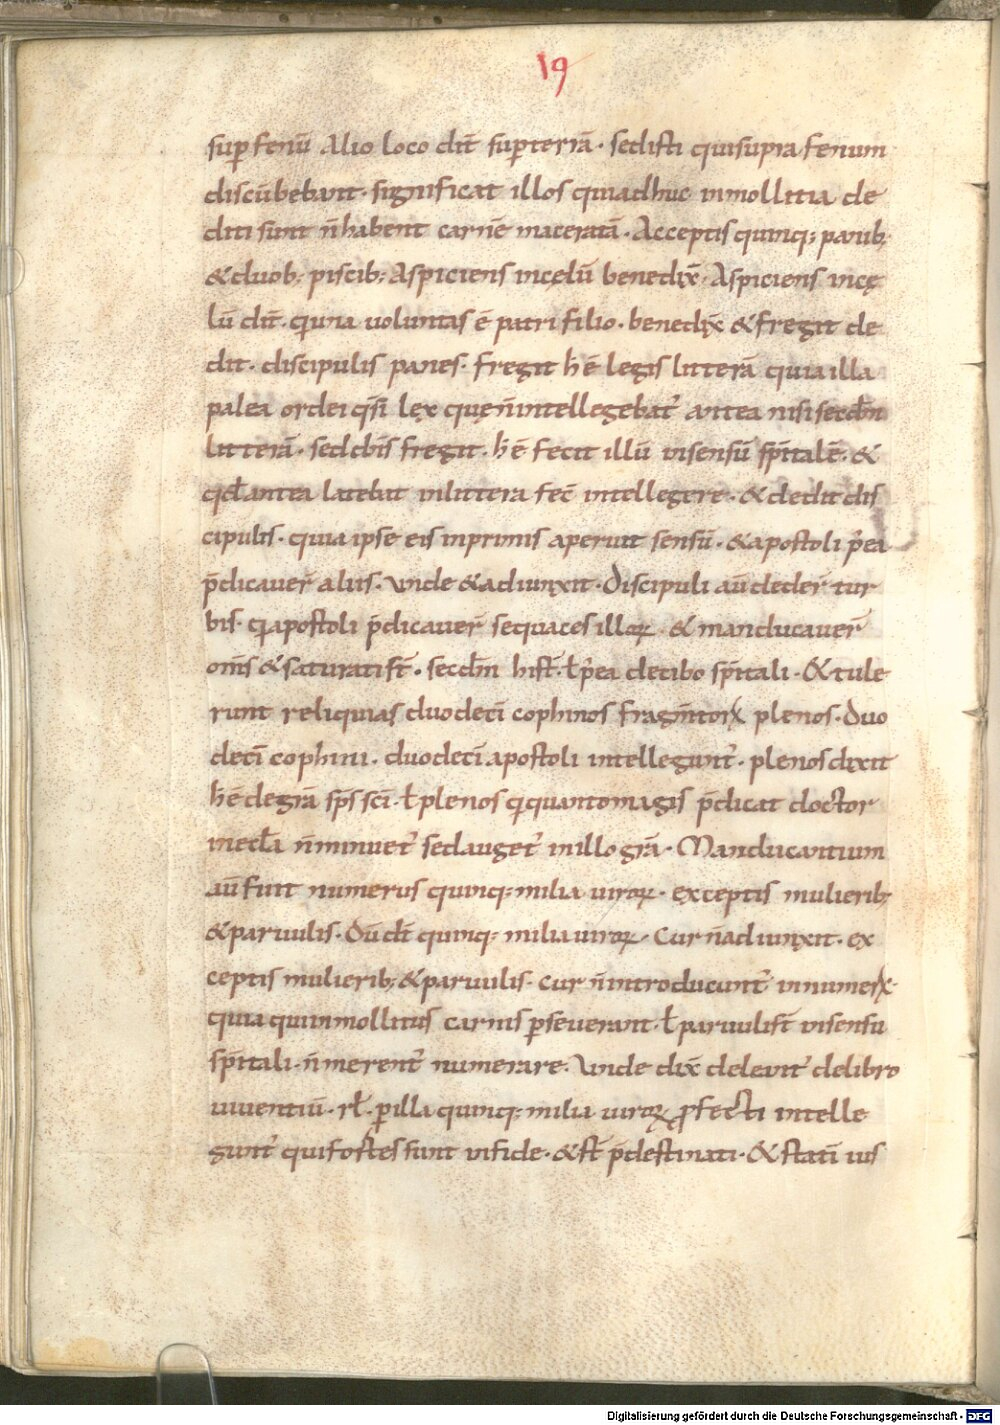 19
sup fenū Alio loco dic̄ sup terrā · sed isti qui supra fenum
discūbebant · significat illos qui adhuc in mollitia de
diti sunt n̄ habent carnē maceratā · Acceptis quinq; panib;
& duob; piscib; Aspiciens in cęlū benedix̄ · Aspiciens in cę
lū dic̄ · q una voluntas ē patri & filio · benedix̄ & fregit de
dit · discipulis panes · fregit h̄ ē legis litterā quia illa
palea ordei q̄si lex quę n̄ intellegebat̄ antea nisi secdm̄
litterā · sed d̄n̄s fregit · h̄ ē fecit illū in sensū sp̄italē · &
qd̄ antea latebat in littera fec̄ intellegere · & dedit dis
cipulis · quia ipse eis inprimis aperuit sensū · & apostoli p̄ea
p̄dicaver̄ aliis · unde & adiunxit · Discipuli aū deder̄ tur
bis · q apostoli p̄dicaver̄ sequaces illoꝝ · & manducaver̄
om̄s & saturati st̄ · secdm̄ hist̄ · ł p̄ea de cibo sp̄itali · & tule
runt reliquias duodecī cophinos fragm̄torꝝ plenos · Duo
decī cophini · duodecī apostoli intellegunt̄ · plenos dixit
h̄ ē de gr̄a sp̄s sc̄i · ł plenos q quanto magis p̄dicat doctor
in eccła n̄ minuet̄ sed auget̄ in illo gr̄a · Manducantium
aū fuit numerus quinq; milia viroꝝ · exceptis mulierib;
& parvulis · Dū dic̄ quinq; milia viroꝝ · Cur n̄ adiunxit · ex
ceptis mulierib; & parvulis · cur n̄ introducunt̄ in numeꝝ ·
quia qui in mollitiis carnis pseverant · ł parvuli st̄ in sensu
sp̄itali · n̄ merent̄ numerare · Unde dix̄ deleant̄ de libro
viventiū · rł · p illa quinq; milia viroꝝ pfecti intelle
gunt̄ qui fortes sunt in fide · & st̄ p̄destinati · & statī ius
Digitalisierung gefördert durch die Deutsche Forschungsgemeinschaft - DFG